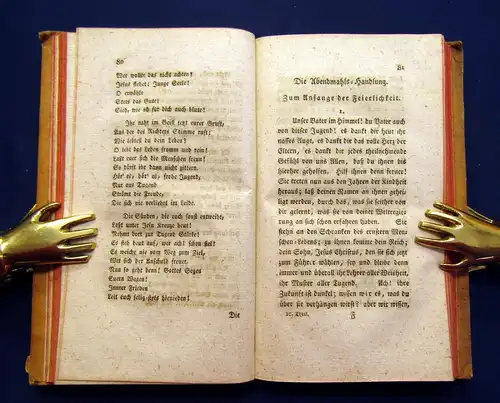 80
Wer wollte das nicht achten?
Jesus siehet! Junge Seele!
O erwähle
Stets das Gute!
Sieh, wie es für dich auch blute!
Ihr naht im Geist jetzt eurer Gruft,
Aus der des Richters Stimme ruft;
Wie liebest du dein Leben?
O lebt das Leben fromm und rein!
Laßt euer sich die Menschen freun!
So dürft ihr dann nicht zittern.
Hör' es! hör' es, frohe Jugend,
Nur aus Tugend
Strömt die Freude,
Die sich nie verliebet im Leide.
Die Sünden, die euch sonst entweiht,
Erst unter Jesu Kreuze heut!
Nehmt dort zur Tugend Hülfe!
Es sieh drauf aus, wer acht schon fiel!
Es weiche nie vom Weg zum Ziel,
Wer sich der Unschuld freuet.
Nun so geht denn! Gottes Segen
Euern Wegen!
Innrer Frieden
Leit euch selig stets hienieden!
Die
81
Die Abendmahls-Handlung.
Zum Anfange der Feierlichkeit.
1.
Unser Vater im Himmel! du Vater auch
von dieser Jugend! es dankt dir heut ihr
nasses Auge, es dankt dir das volle Herz der
Eltern, es dankt dir jedes theilnehmende
Gefühl von uns Allen, daß du ihnen bis
hierher geholfen. Hilf ihnen denn ferner!
Sie treten nun aus den Jahren der Kindheit
heraus; laß deinen Namen an ihnen geheili-
get werden, durch das, was sie seither von
dir gelernt, was sie von deiner Weltregie-
rung an sich schon erfahren haben. Sie
stehn an den Schranken des ernstern Men-
schen-Lebens; zu ihnen komme dein Reich;
dein Sohn, Jesus Christus, den sie sich jetzt
zum Führer wählen, sey und bleibe denn
immer und überall ihr Lehrer aller Weisheit,
ihr Muster aller Tugend. Ach! ihre
Zukunft ist dunkel; wissen wir es, was du
über sie verhängen wirst! aber wir wissen,
2r. Theil. F